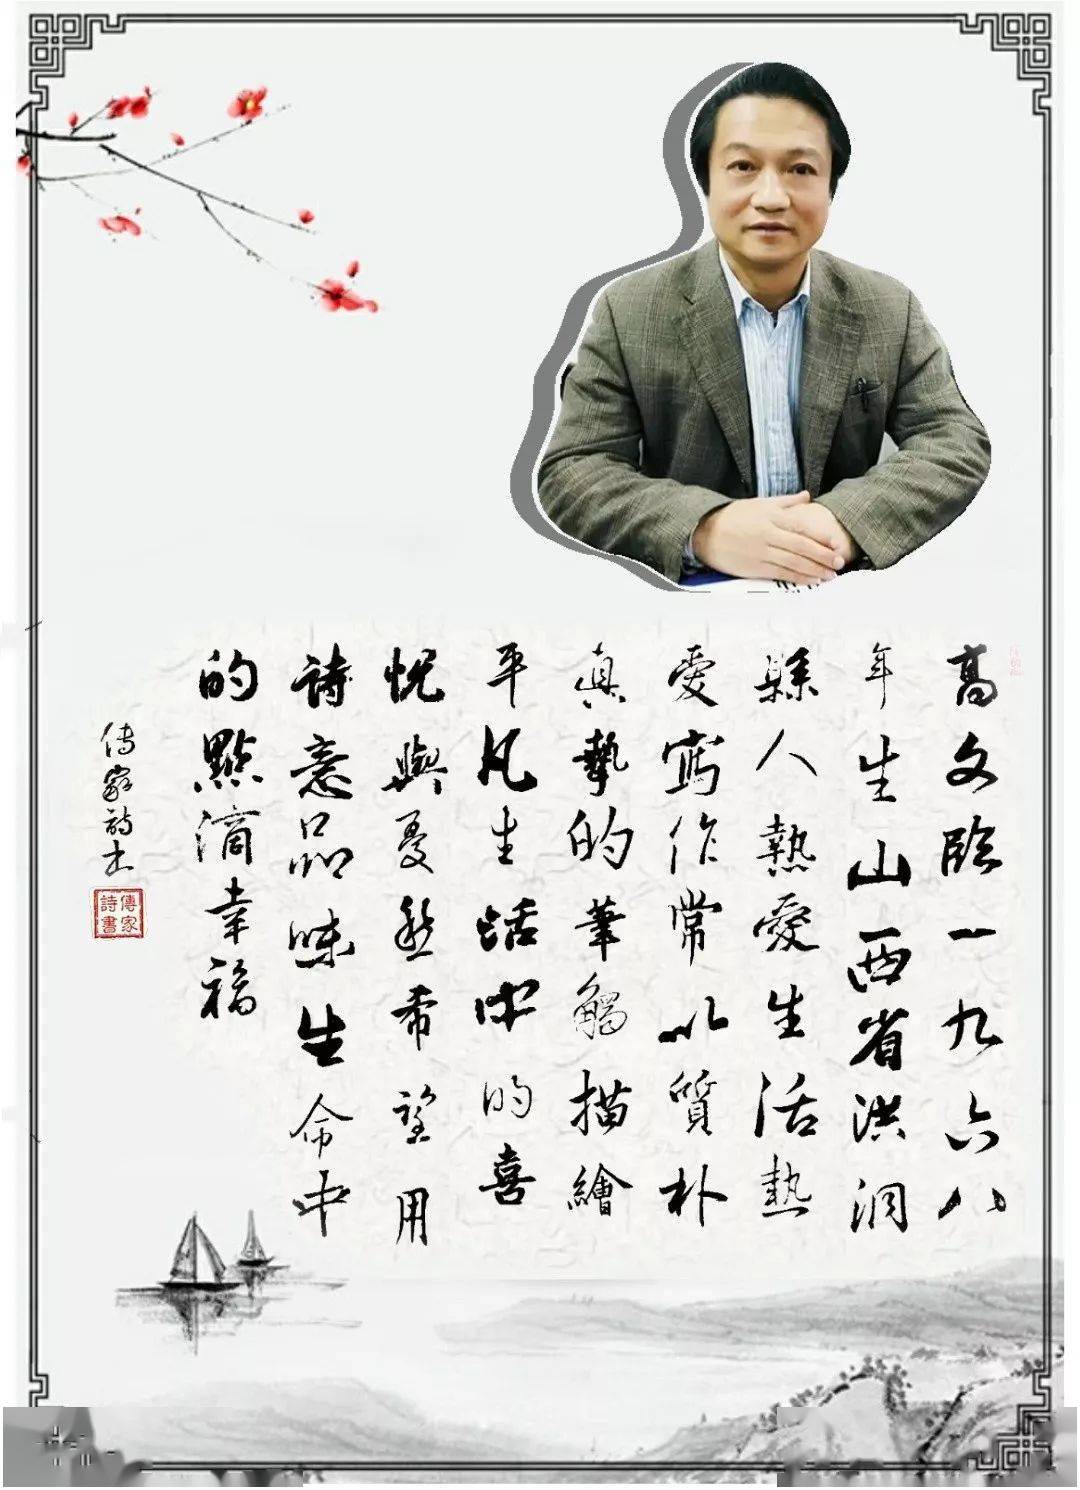 高文臨一九六八
年生山西省洪洞
縣人熱愛生活熱
愛寫作常以質朴
真摯的筆觸描繪
平凡生活中的喜
悅與憂愁希望用
詩意品味生命中
的點滴幸福
傳家詩書
傳家
詩書